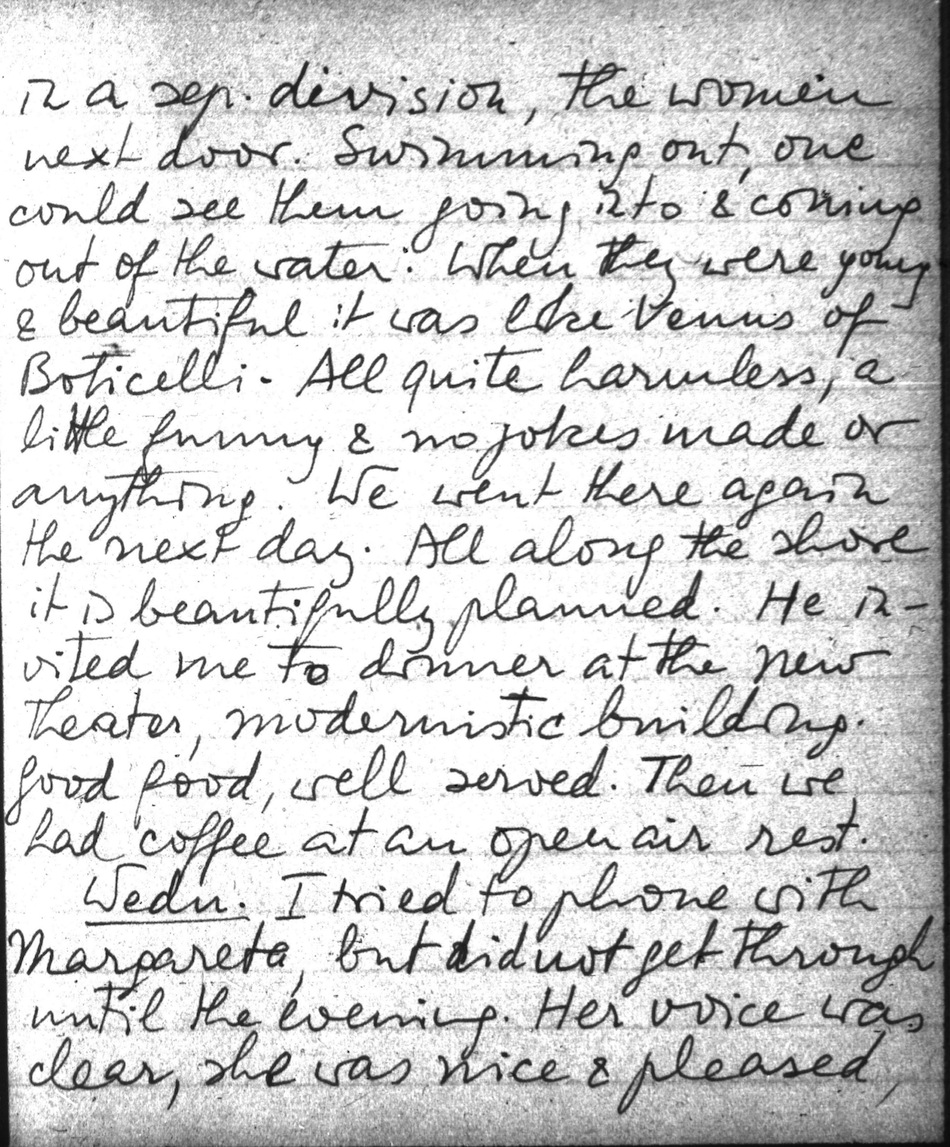 in a sep. division, the women
next door. Swimming out, one
could see them going into & coming
out of the water. When they were young
& beautiful it was like Venus of
Boticelli. All quite harmless, a
little funny & no jokes made or
anything. We went there again
the next day. All along the shore
it is beautifully planned. He in-
vited me to dinner at the new
theater, modernistic building.
Good food, well served. Then we
had coffee at an open air rest.
Wedn. I tried to phone with
Margareta, but did not get through
until the evening. Her voice was
clear, she was nice & pleased,